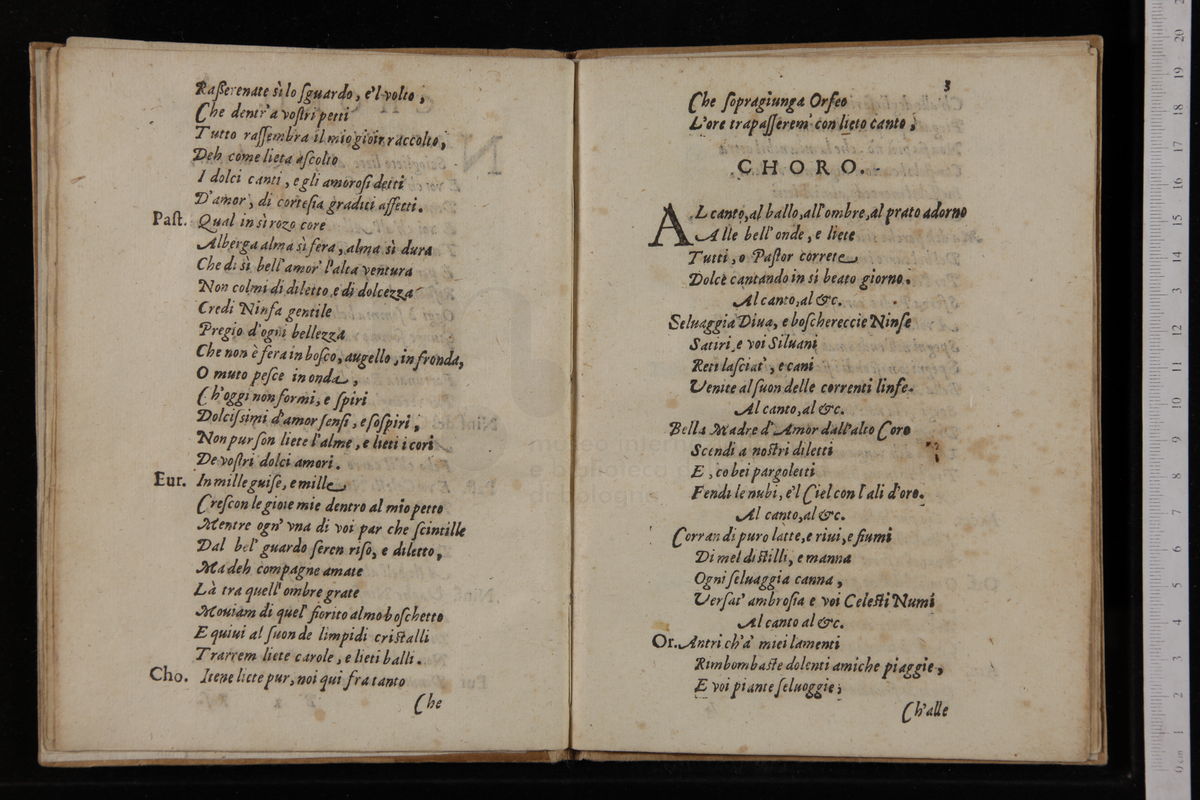 Raſſerenate sì lo ſguardo, e'l volto,
Che dentr' a voſtri petti
Tutto raſſembra il mio gioir raccolto,
Deh come lieta aſcolto
I dolci canti, e gli amoroſi detti
D'amor, di corteſia graditi affetti.
Paſt. Qual in sì rozo core
Alberga alma sì fera, alma sì dura
Che di sì bell'amor' l'alta ventura
Non colmi di diletto e di dolcezza
Credi Ninfa gentile
Pregio d'ogni bellezza
Che non è fera in boſco, augello, in fronda,
O muto peſce in onda,
Ch'oggi non formi, e ſpiri
Dolciſsimi d'amor ſenſi, e ſoſpiri,
Non pur ſon liete l'alme, e lieti i cori
De voſtri dolci amori.
Eur. In mille guiſe, e mille
Creſcon le gioie mie dentro al mio petto
Mentre ogn' vna di voi par che ſcintille
Dal bel' guardo ſeren riſo, e diletto,
Ma deh compagne amate
Là tra quell'ombre grate
Mouiam di quel' fiorito almo boſchetto
E quiui al ſuon de limpidi criſtalli
Trarrem liete carole, e lieti balli.
Cho. Itene liete pur, noi qui fra tanto
Che
3
Che ſopragiunga Orfeo
L'ore trapaſſerem' con lieto canto,
CHORO.
AL canto, al ballo, all'ombre, al prato adorno
Alle bell'onde, e liete
Tutti, o Paſtor correte
Dolce cantando in sì beato giorno.
Al canto, al &c.
Seluaggia Diua, e boſchereccie Ninfe
Satiri, e voi Siluani
Reti laſciat', e cani
Venite al ſuon delle correnti linfe.
Al canto, al &c.
Bella Madre d'Amor dall'alto Coro
Scendi a noſtri diletti
E, co bei pargoletti
Fendi le nubi, e'l Ciel con l'ali d'oro.
Al canto, al &c.
Corran di puro latte, e riui, e fiumi
Di mel diſtilli, e manna
Ogni ſeluaggia canna,
Verſat' ambroſia e voi Celeſti Numi
Al canto al &c.
Or. Antri ch'a' miei lamenti
Rimbombaſte dolenti amiche piaggie,
E voi piante ſeluoggie;
Ch'alle